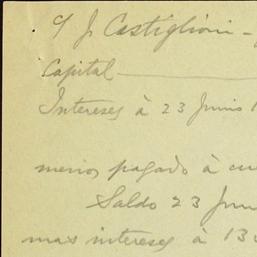 J. Castiglioni -
Capital
Intereses à 23 Junio
menos pagado à cu
Saldo 23 Jun
mas intereses à 13